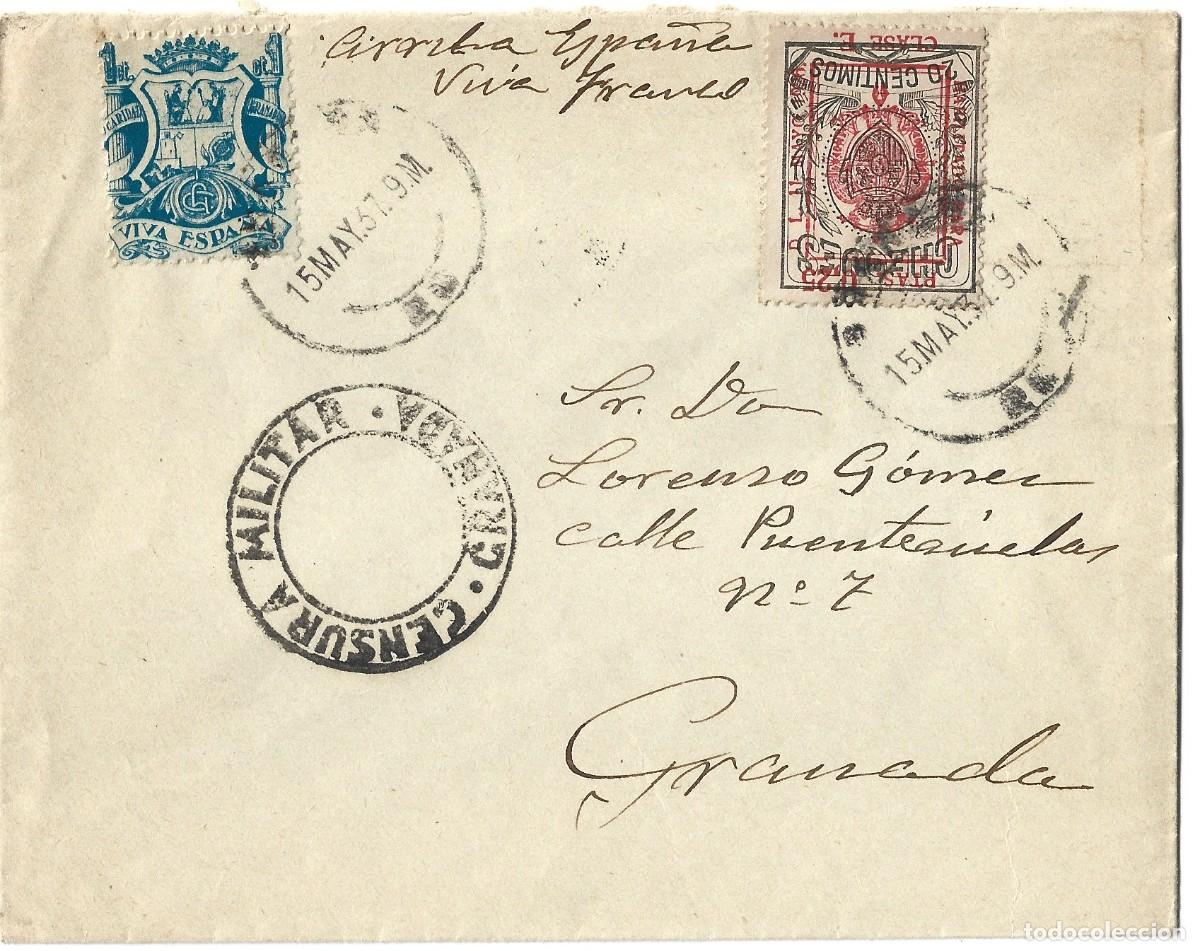 Arriba España
Viva Franco
1 ct. ct. 1
CARIDAD
VIVA ESPAÑA
CLASE E.
20 CENTIMOS
CORREO
PTAS. 0'25
15 MAY.37. 9 M.
15 MAY.37. 9 M.
CENSURA MILITAR · GRANADA ·
Sr. Dn
Lorenzo Gómez
calle Puentezuelas
nº 7
Granada
todocoleccion